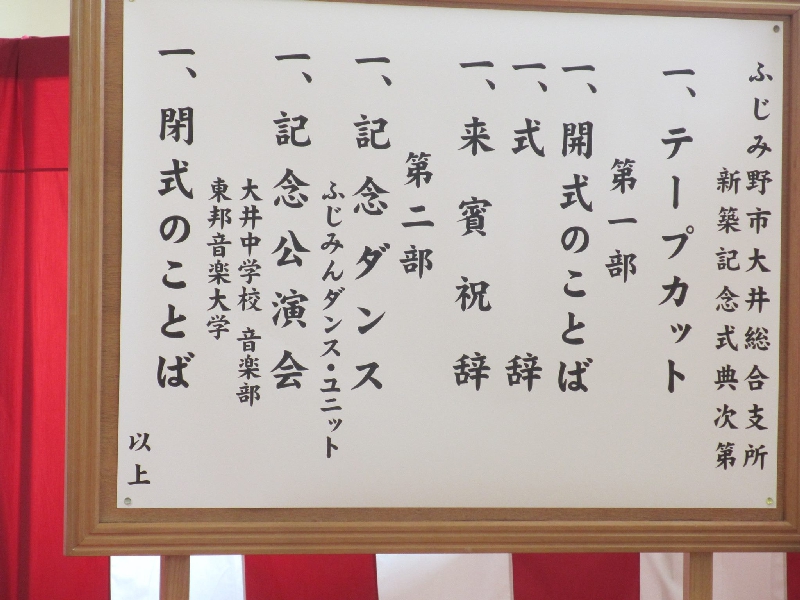 ふじみ野市大井総合支所
新築記念式典次第
一、テープカット
第一部
一、開式のことば
一、式辞
一、来賓祝辞
第二部
一、記念ダンス
ふじみんダンス・ユニット
一、記念公演会
大井中学校 音楽部
東邦音楽大学
一、閉式のことば
以上